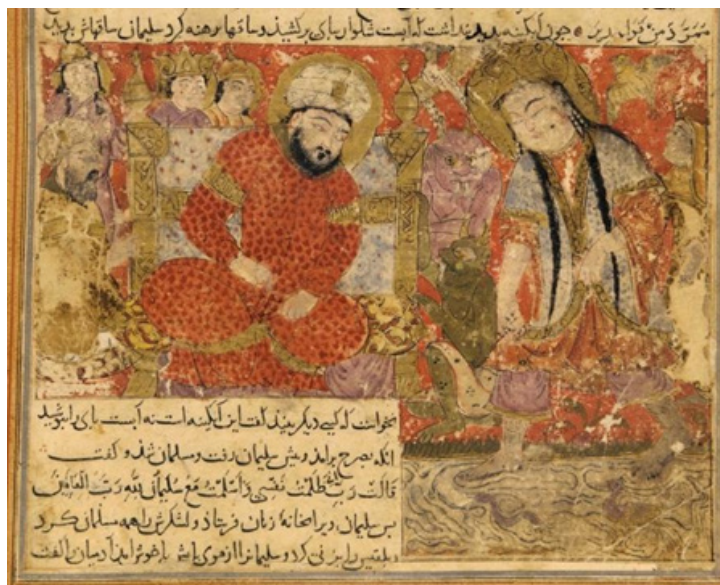 ممرد من قواریر چون آبکینه بدید بنداشت که آبست شلوار بای برکشید و ساقها برهنه کرد سلیمان ساقهاش بدید
نخواست که کسی دیکر بیند کفت این آبکینه است نه آبست بای را بپوشید
آنکه بصرح برامذ و بیش سلیمان رفت و مسلمان شذ و کفت
قالت رب انی ظلمت نفسی و اسلمت مع سلیمان لله رب العالمین
بس سلیمان ویرا بخانهٔ زنان فرستاذ و لشکرش را همه مسلمان کرد
و بلقیس را بزنی کرد و سلیمانرا از موی